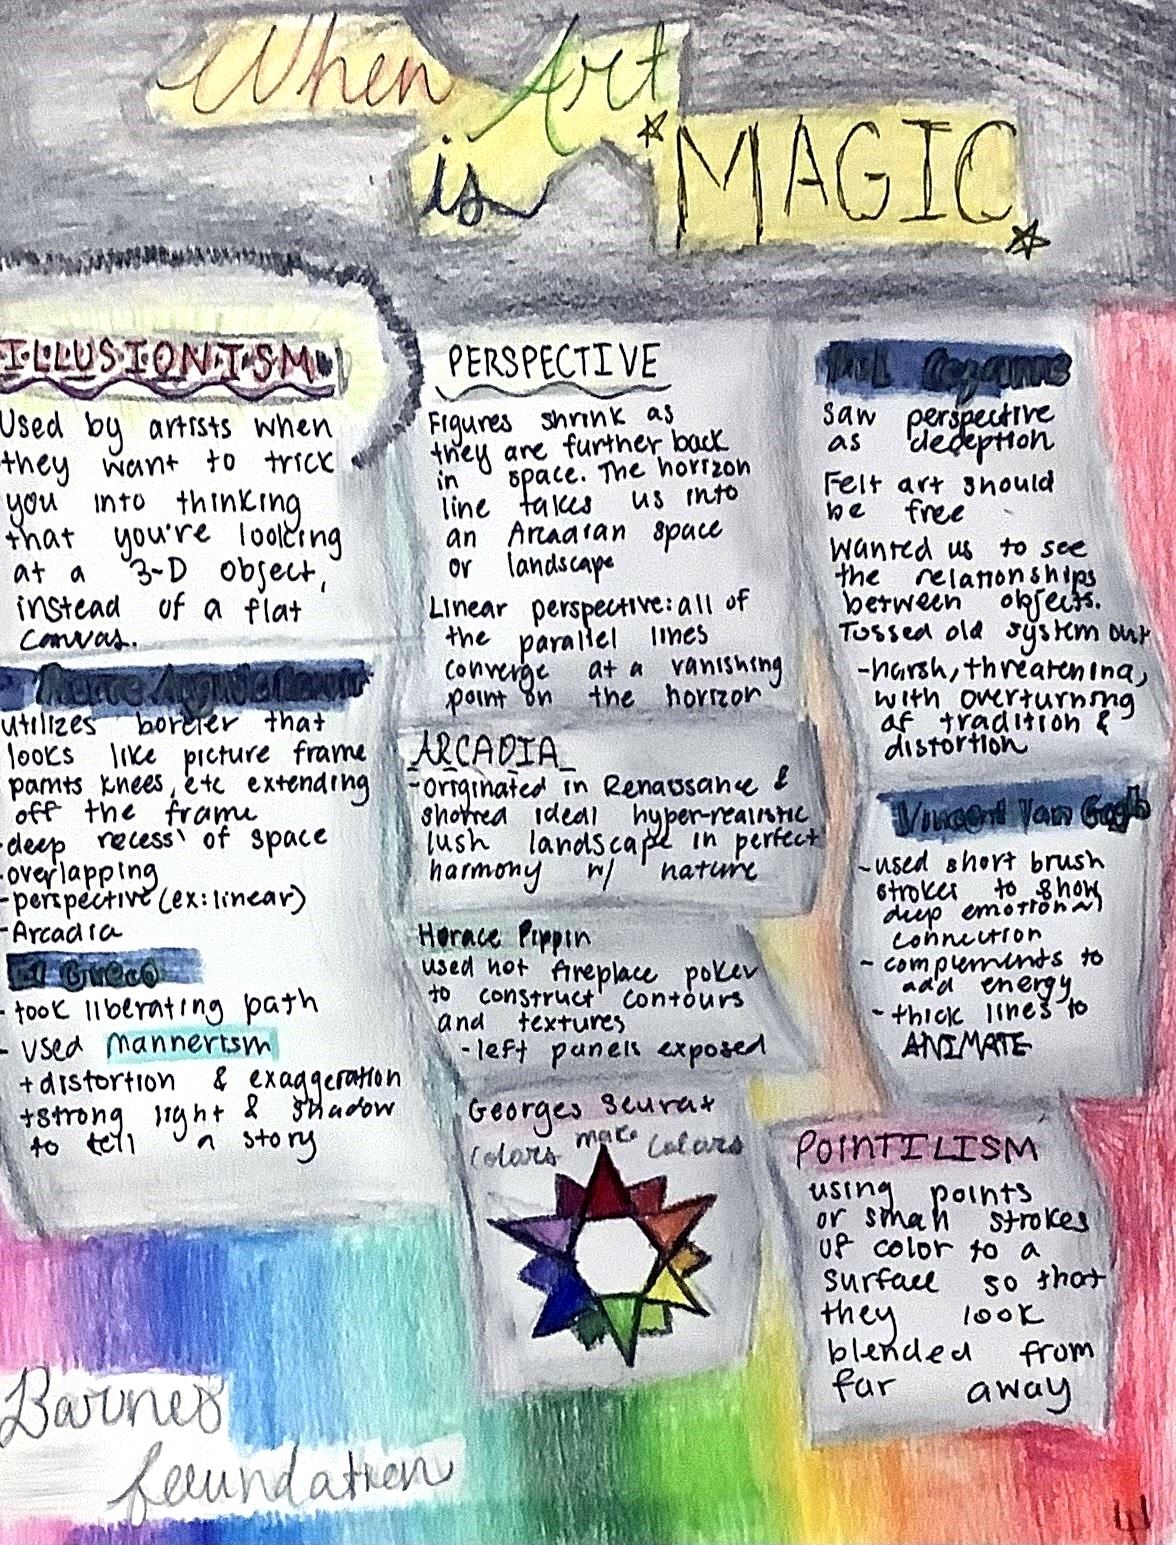 When Art
is MAGIC
ILLUSIONISM
Used by artists when
they want to trick
you into thinking
that you're looking
at a 3-D object,
instead of a flat
canvas.
Pierre Auguste Renoir
utilizes border that
looks like picture frame
paints knees, etc extending
off the frame
-deep recess of space
-overlapping
-perspective (ex: linear)
-Arcadia
El Greco
- took liberating path
- used mannerism
+distortion & exaggeration
+strong light & shadow
to tell a story
Barnes
foundation
PERSPECTIVE
Figures shrink as
they are further back
in space. The horizon
line takes us into
an Arcadian space
or landscape
Linear perspective: all of
the parallel lines
converge at a vanishing
point on the horizon
ARCADIA
-originated in Renassance &
showed ideal hyper-realistic
lush landscape in perfect
harmony w/ nature
Horace Pippin
used hot fireplace poker
to construct contours
and textures
-left panels exposed
Georges Seurat
colors make colors
Cezanne
saw perspective
as deception
Felt art should
be free
Wanted us to see
the relationships
between objects.
Tossed old system out
-harsh, threatening,
with overturning
of tradition &
distortion
Vincent Van Gogh
-used short brush
strokes to show
deep emotional
connection
- complements to
add energy
- thick lines to
ANIMATE
POINTILISM
using points
or small strokes
of color to a
surface so that
they look
blended from
far away